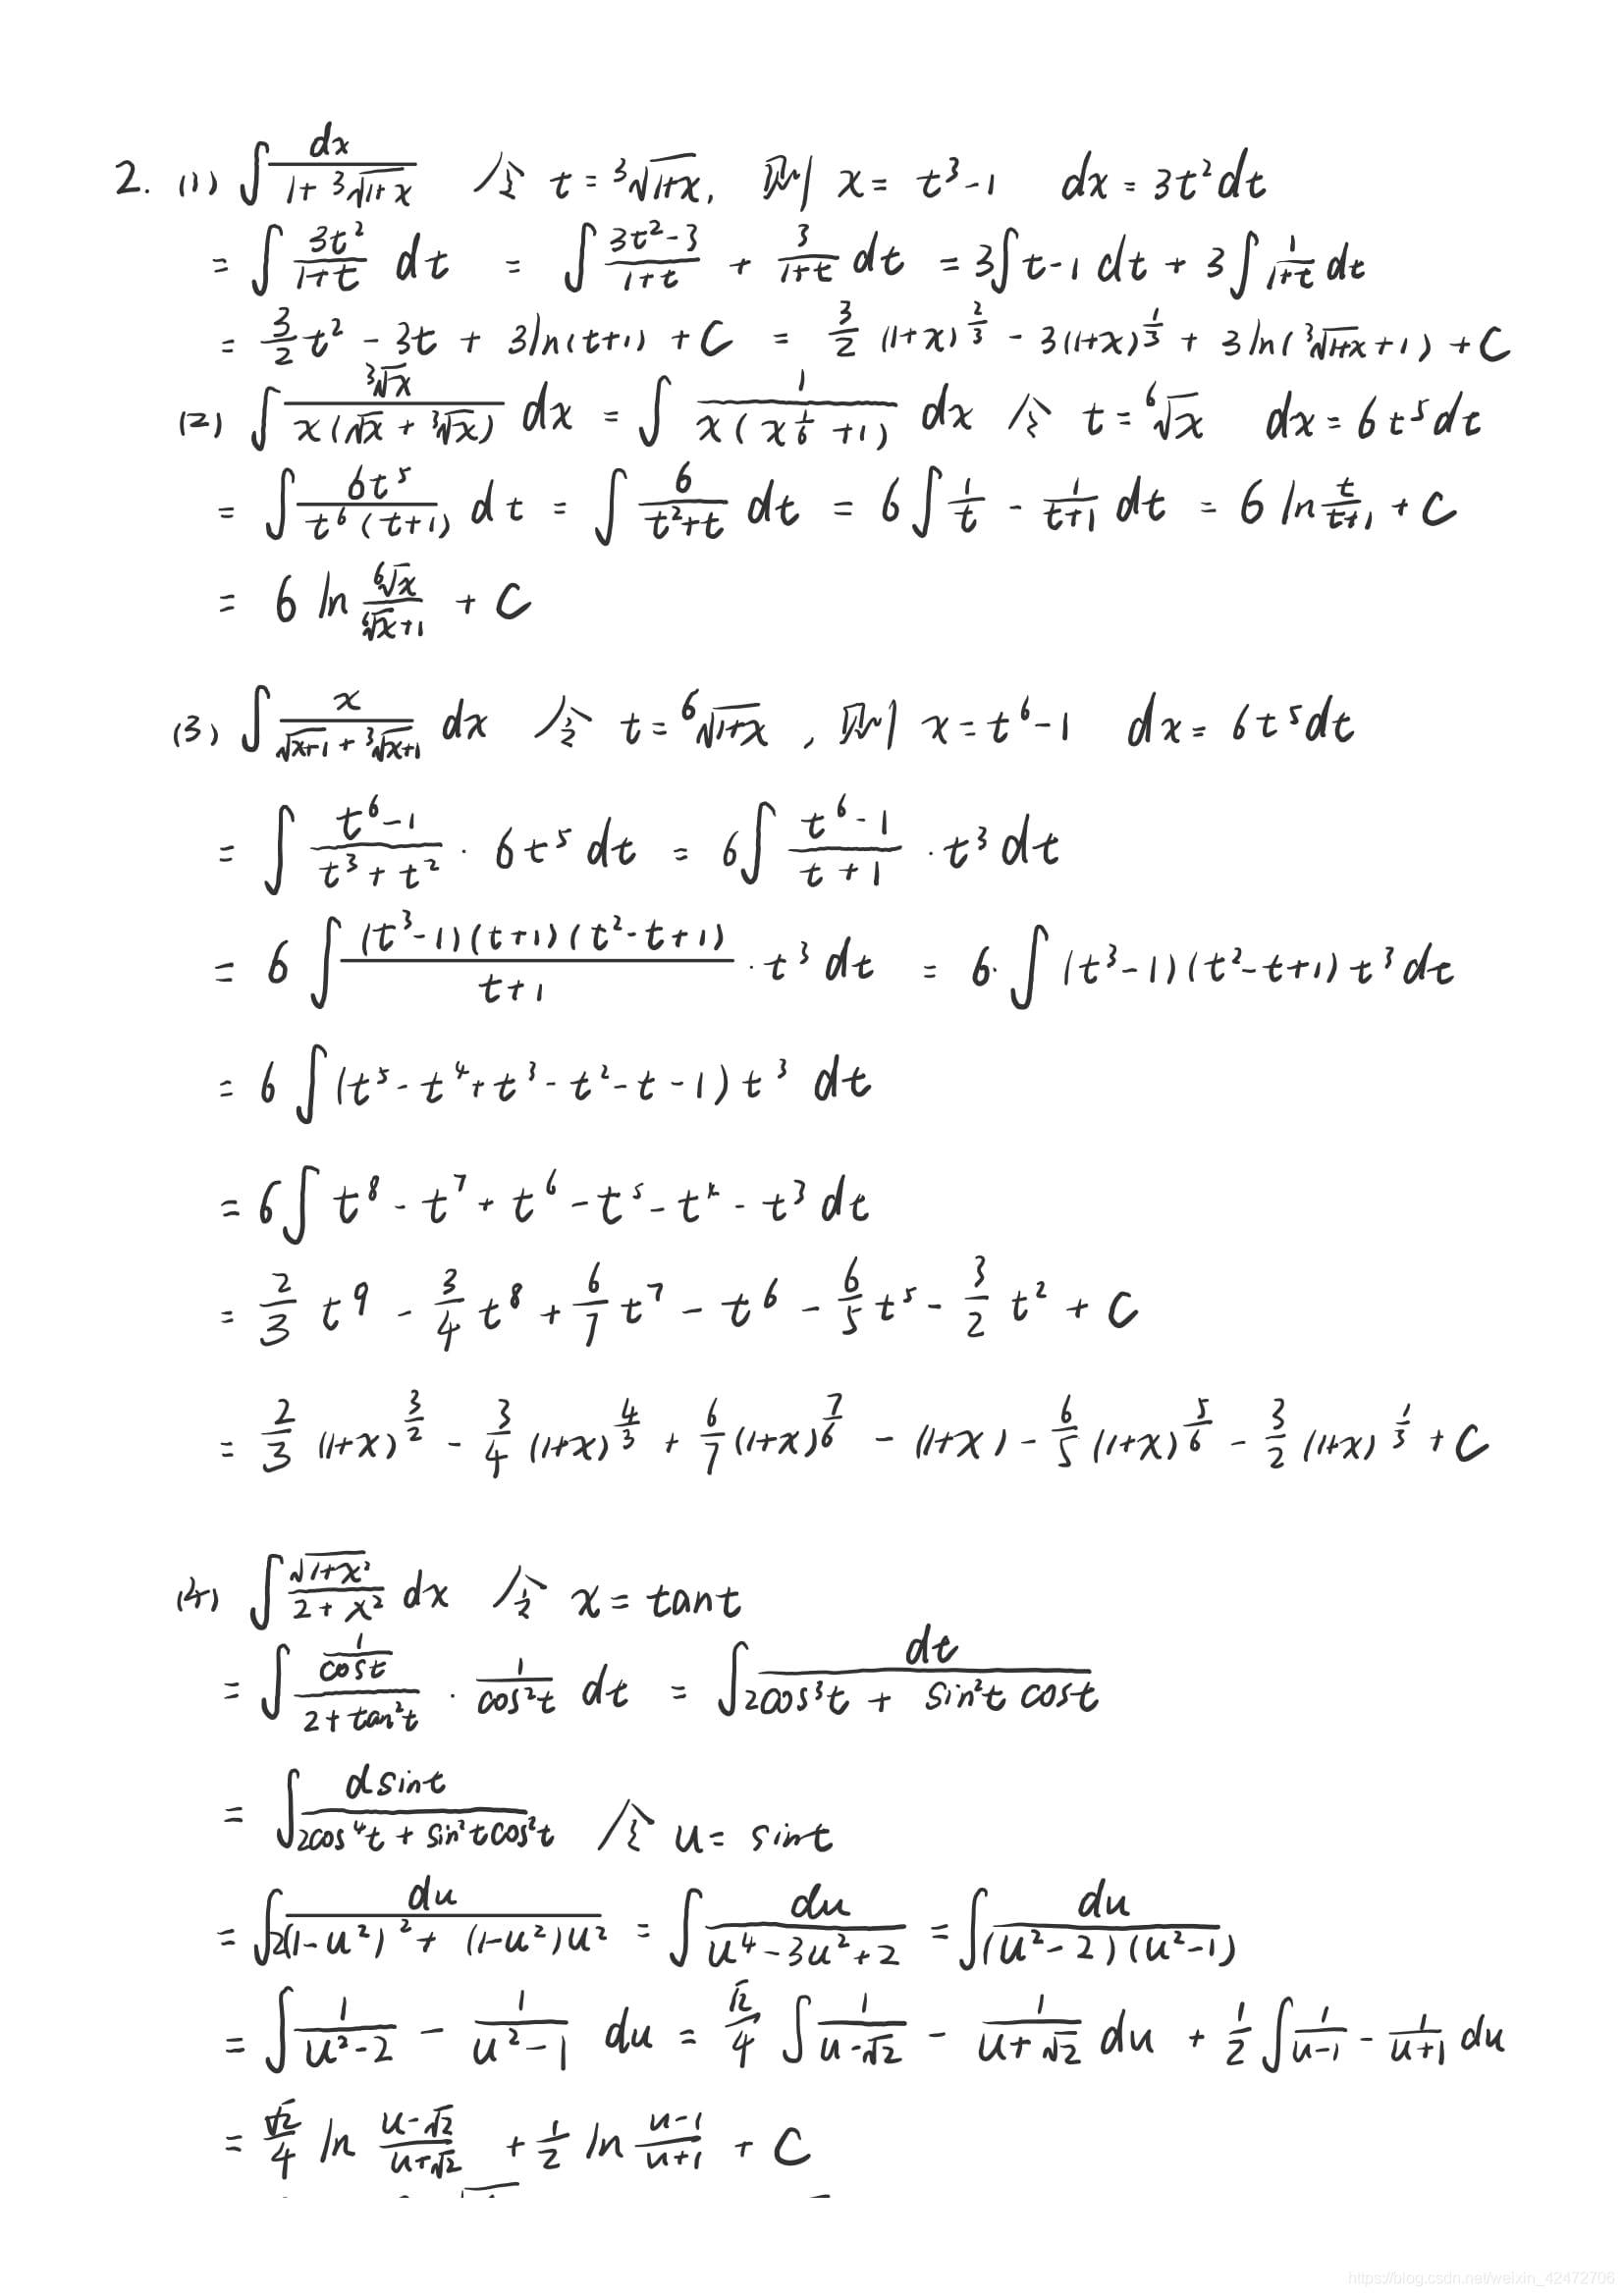 2. (1) ∫ dx/(1+∛(1+x)) 令 t = ∛(1+x), 则 x = t³-1 dx = 3t²dt
= ∫ 3t²/(1+t) dt = ∫ (3t²-3)/(1+t) + 3/(1+t) dt = 3∫ t-1 dt + 3∫ 1/(1+t) dt
= 3/2 t² - 3t + 3ln(t+1) + C = 3/2 (1+x)^(2/3) - 3(1+x)^(1/3) + 3ln(∛(1+x)+1) + C
(2) ∫ ∛x/(x(√x+∛x)) dx = ∫ 1/(x(x^(1/6)+1)) dx 令 t = ⁶√x dx = 6t⁵dt
= ∫ 6t⁵/(t⁶(t+1)) dt = ∫ 6/(t²+t) dt = 6∫ 1/t - 1/(t+1) dt = 6 ln t/(t+1) + C
= 6 ln ⁶√x/(⁶√x+1) + C
(3) ∫ x/(√(x+1)+∛(x+1)) dx 令 t = ⁶√(1+x), 则 x = t⁶-1 dx = 6t⁵dt
= ∫ (t⁶-1)/(t³+t²) · 6t⁵ dt = 6∫ (t⁶-1)/(t+1) · t³ dt
= 6∫ (t³-1)(t+1)(t²-t+1)/(t+1) · t³ dt = 6·∫ (t³-1)(t²-t+1)t³dt
= 6∫ (t⁵-t⁴+t³-t²-t-1)t³ dt
= 6∫ t⁸-t⁷+t⁶-t⁵-t⁴-t³ dt
= 2/3 t⁹ - 3/4 t⁸ + 6/7 t⁷ - t⁶ - 6/5 t⁵ - 3/2 t² + C
= 2/3 (1+x)^(3/2) - 3/4 (1+x)^(4/3) + 6/7 (1+x)^(7/6) - (1+x) - 6/5 (1+x)^(5/6) - 3/2 (1+x)^(1/3) + C
(4) ∫ √(1+x²)/(2+x²) dx 令 x = tant
= ∫ (1/cost)/(2+tan²t) · 1/cos²t dt = ∫ dt/(2cos³t + sin²t cost)
= ∫ dsint/(2cos⁴t + sin²tcos²t) 令 u = sint
= ∫ du/(2(1-u²)²+(1-u²)u²) = ∫ du/(u⁴-3u²+2) = ∫ du/((u²-2)(u²-1))
= ∫ 1/(u²-2) - 1/(u²-1) du = √2/4 ∫ 1/(u-√2) - 1/(u+√2) du + 1/2 ∫ 1/(u-1) - 1/(u+1) du
= √2/4 ln (u-√2)/(u+√2) + 1/2 ln (u-1)/(u+1) + C
https://blog.csdn.net/weixin_42472706